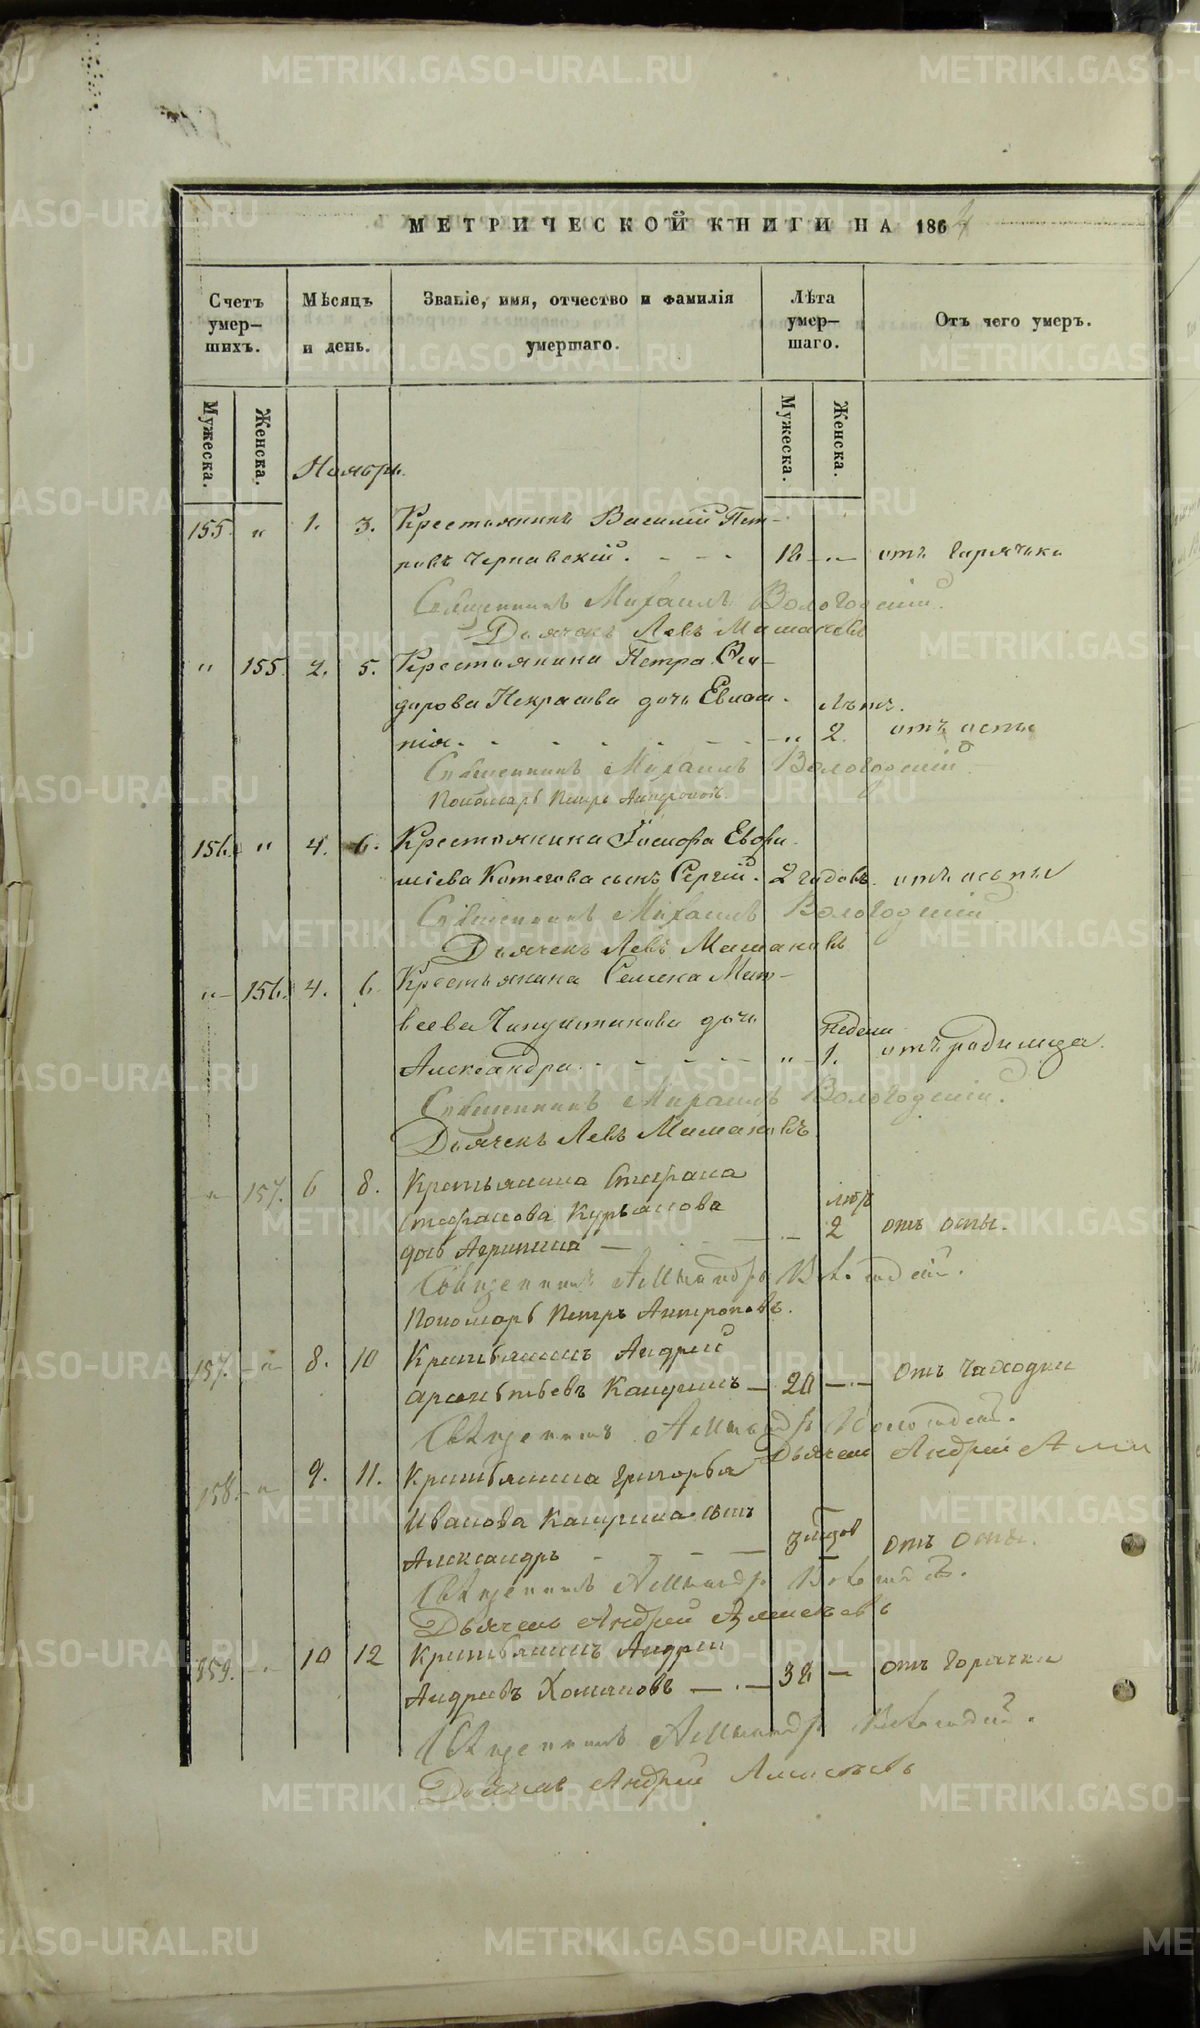 МЕТРИЧЕСКОЙ КНИГИ НА 1864
Счетъ умер— шихъ.
Мѣсяцъ и день.
Званіе, имя, отчество и фамилія умершаго.
Лѣта умер— шаго.
Отъ чего умеръ.
Мужеска.
Женска.
Мужеска.
Женска.
Ноябрь.
155. " 1. 3. Крестьянинъ Василій Пет-
ровъ Чернавскій. - - - 16 - " - отъ горячки
Священникъ Михаилъ Вологодскій.
Дьячекъ Левъ
" 155. 2. 5. Крестьянина Петра Си-
дорова Некрасова дочь Евлам- лѣтъ.
пія. - - - - - " 2. отъ оспы
Священникъ Михаилъ Вологодскій
Пономарь Петръ Антроповъ.
156. " 4. 6. Крестьянина Іосифа Евфи-
міева Котегова сынъ Сергій. 2 годовъ. отъ оспы
Священникъ Михаилъ Вологодскій
Дьячекъ Левъ
" - 156. 4. 6. Крестьянина Семена Мат-
веева дочь недели
Александра. - - - - " - 1. отъ родимца.
Священникъ Михаилъ Вологодскій.
Дьячекъ Левъ
" 157. 6 8. Крестьянина Стефана
Стефанова Курьанова лѣтъ
дочь Агрипина — - — - 2 отъ оспы.
Священникъ Александръ Вологодскій.
Пономарь Петръ Антроповъ.
157. - " - 8. 10 Крестьянинъ Андрей
Арсентьевъ — 20 — - — отъ чаходки
Священникъ Александръ Вологодскій.
Дьячекъ Андрей
158. - " - 9. 11. Крестьянина Григорья
Иванова сынъ
Александръ - - - — 3 годов отъ оспы.
Священникъ Александръ Вологодскій.
Дьячекъ Андрей
159. - " - 10 12 Крестьянинъ Андрей
Андреевъ Хомяковъ — - — 38 — отъ горячки
Священникъ Александръ Вологодскій.
Дьячекъ Андрей
METRIKI.GASO-URAL.RU